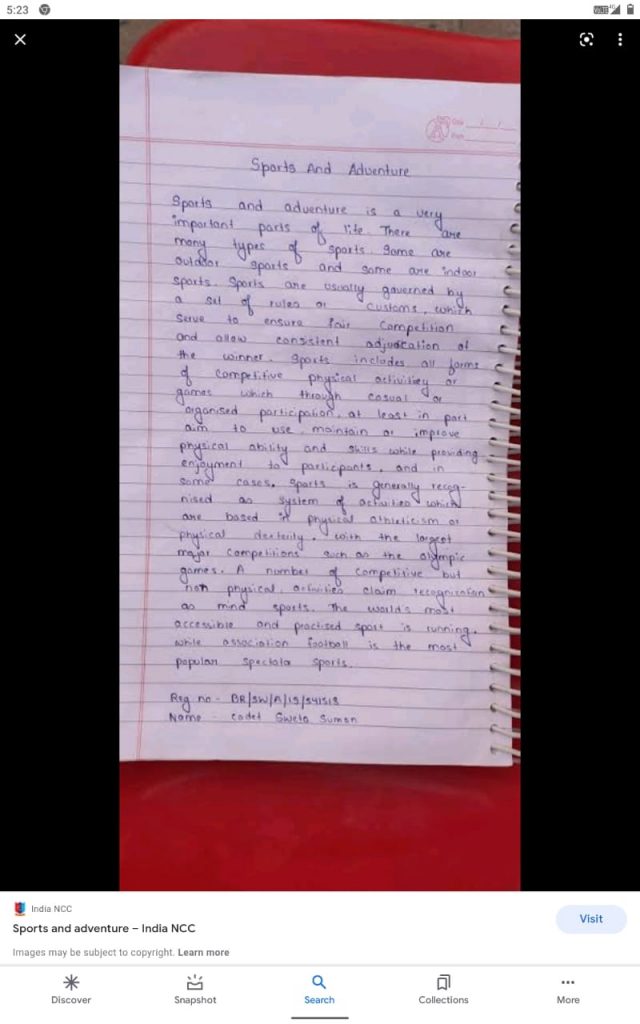 5:23
Date
Page
Sports And Adventure
Sports and adventure is a very
important parts of life. There are
many types of sports. Some are
outdoor sports and some are indoor
sports. Sports are usually governed by
a set of rules or customs, which
serve to ensure fair competition
and allow consistent adjudication of
the winner. Sports includes all forms
of competitive physical activitiey or
games which through casual or
organised participation, at least in part
aim to use, maintain or improve
physical ability and skills while providing
enjoyment to participants, and in
some cases. Sports is generally recog-
nised as system of activities which
are based in physical athleticism or
physical dexterity, with the largest
major competitions such as the olympic
games. A number of competitive but
non physical, activities claim recognization
as mind sports. The world's most
accessible and practised sport is running,
while association football is the most
popular spectato sports.
Reg no - BR/SW/A/19/541518
Name - Cadet Sweta Suman
India NCC
Sports and adventure – India NCC
Visit
Images may be subject to copyright. Learn more
Discover
Snapshot
Search
Collections
More